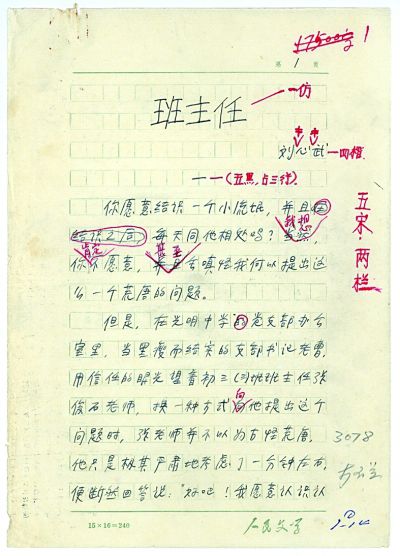 17500字 1
第 1 页
班主任 —仿
刘心武 —四楷
一 —(五黑,占三行)
五宋·两栏
你愿意结识一个小流氓,并且在
我想
结识之后,每天同他相处吗?当然,
肯定 甚至
你不愿意,并且会嗔怪我何以提出这
么一个荒唐的问题。
但是,在光明中学的党支部办公
室里,当黑瘦而结实的支部书记老曹,
用信任的眼光望着初三(三)班班主任张
俊石老师,换一种方式向他提出这个
问题时,张老师并不以为古怪荒唐,
3078
他只是极其严肃地考虑了一分钟左右,
便断然回答说:“好吧!我愿意认识认
15×16=240
人民文学